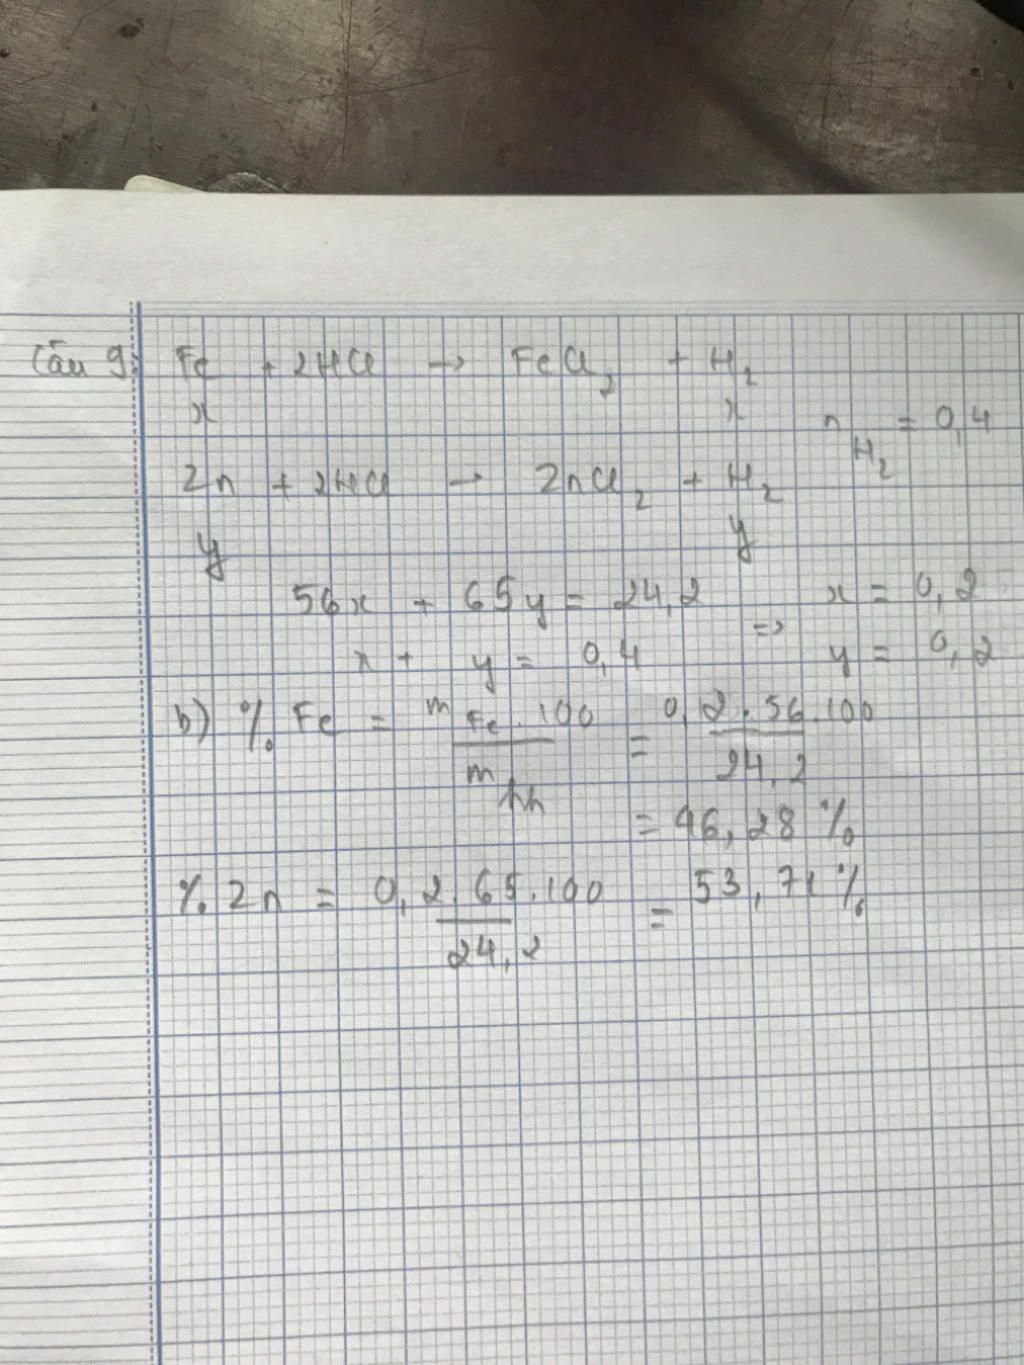 Câu 9: Fe + 2HCl → FeCl₂ + H₂
x x
n H₂ = 0,4
Zn + 2HCl → ZnCl₂ + H₂
y y
56x + 65y = 24,2
x + y = 0,4
⇒ x = 0,2
y = 0,2
b) % Fe = m Fe . 100 / m hh = 0,2 . 56 . 100 / 24,2
= 46,28 %
% Zn = 0,2 . 65 . 100 / 24,2 = 53,71 %